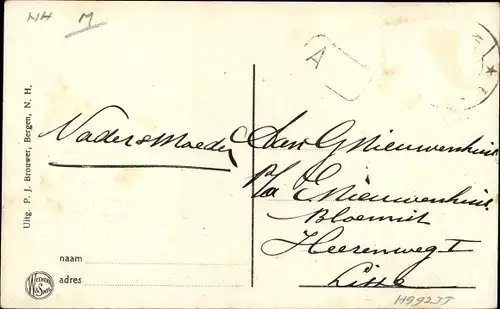 NH M
A
Vader & Moeder
Uitg. P. J. Brouwer, Bergen, N. H.
G Nieuwenhuis
p/a E Nieuwenhuis
Heerenweg I
Lisse
naam
adres
H9925J